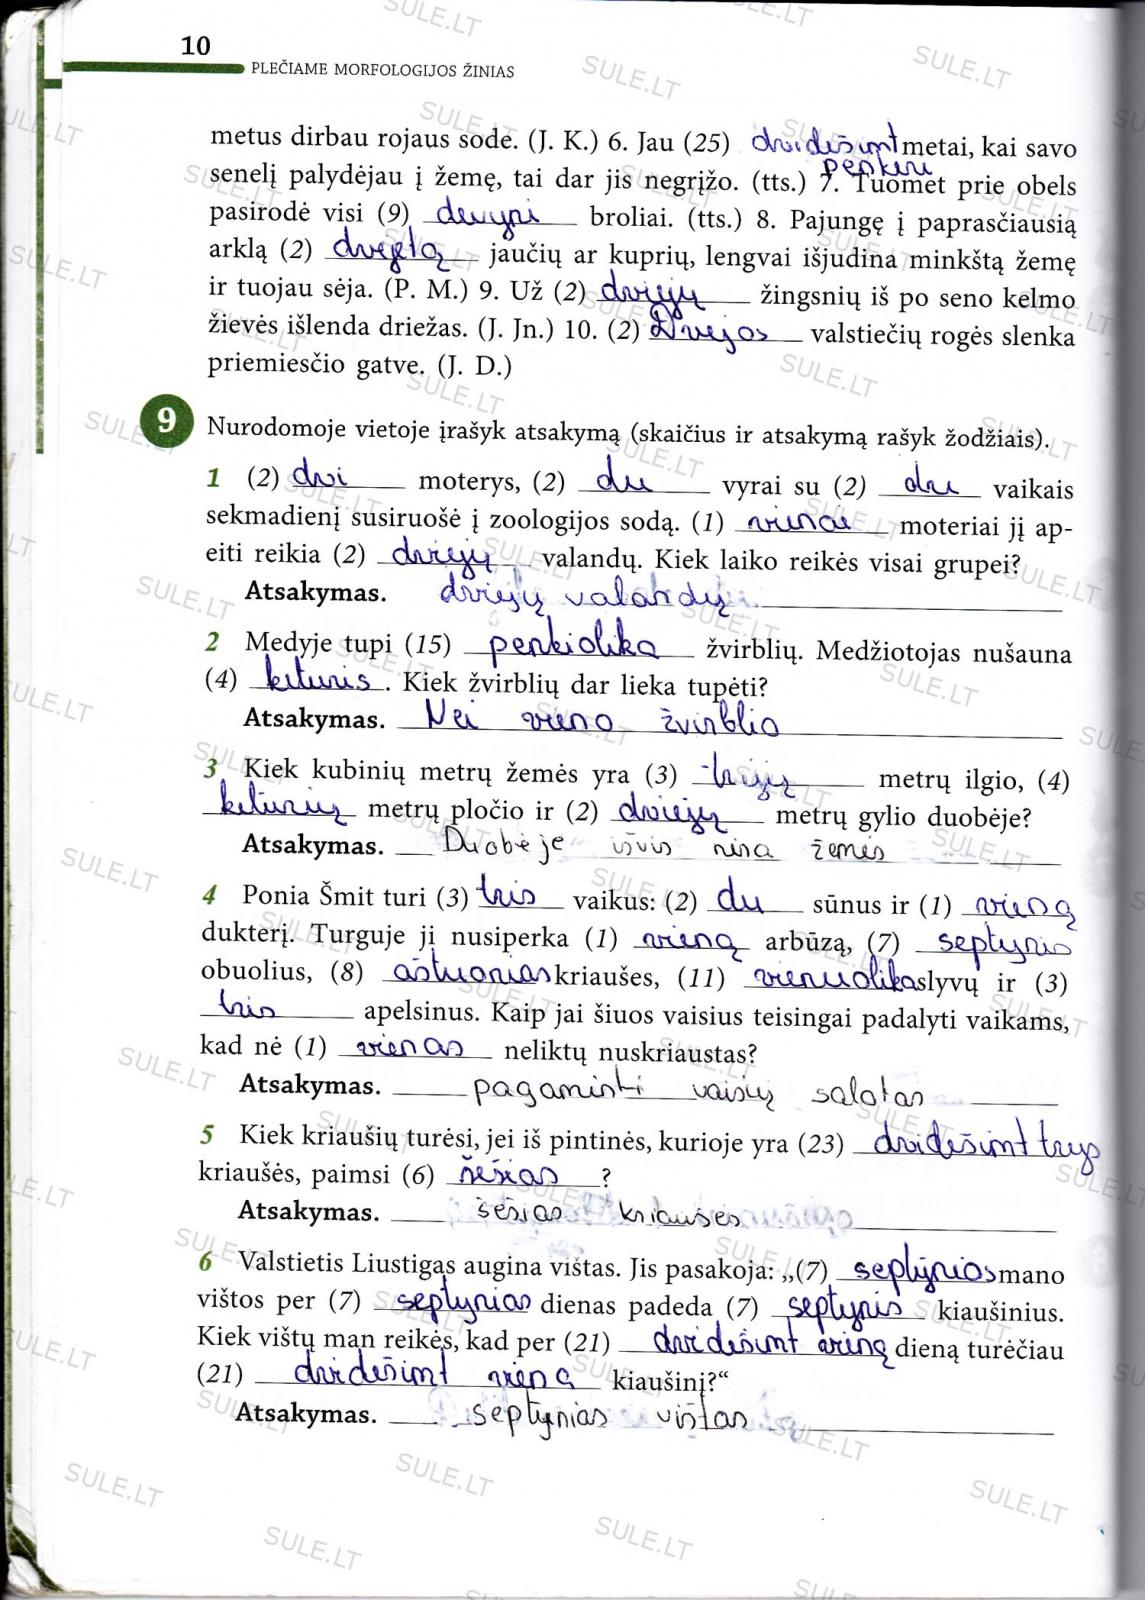 10
PLEČIAME MORFOLOGIJOS ŽINIAS
metus dirbau rojaus sode. (J. K.) 6. Jau (25) dvidešimt metai, kai savo
penkeri
senelį palydėjau į žemę, tai dar jis negrįžo. (tts.) 7. Tuomet prie obels
pasirodė visi (9) devyni broliai. (tts.) 8. Pajungę į paprasčiausią
arklą (2) dvejetą jaučių ar kuprių, lengvai išjudina minkštą žemę
ir tuojau sėja. (P. M.) 9. Už (2) dviejų žingsnių iš po seno kelmo
žievės išlenda driežas. (J. Jn.) 10. (2) Dvejos valstiečių rogės slenka
priemiesčio gatve. (J. D.)
9 Nurodomoje vietoje įrašyk atsakymą (skaičius ir atsakymą rašyk žodžiais).
1 (2) dvi moterys, (2) du vyrai su (2) du vaikais
sekmadienį susiruošė į zoologijos sodą. (1) vienai moteriai jį ap-
eiti reikia (2) dviejų valandų. Kiek laiko reikės visai grupei?
Atsakymas. dviejų valandų
2 Medyje tupi (15) penkiolika žvirblių. Medžiotojas nušauna
(4) keturis. Kiek žvirblių dar lieka tupėti?
Atsakymas. Nei vieno žvirblio
3 Kiek kubinių metrų žemės yra (3) trijų metrų ilgio, (4)
keturių metrų pločio ir (2) dviejų metrų gylio duobėje?
Atsakymas. Duobėje išvis nėra žemės
4 Ponia Šmit turi (3) tris vaikus: (2) du sūnus ir (1) vieną
dukterį. Turguje ji nusiperka (1) vieną arbūzą, (7) septynis
obuolius, (8) aštuonias kriaušes, (11) vienuolika slyvų ir (3)
tris apelsinus. Kaip jai šiuos vaisius teisingai padalyti vaikams,
kad nė (1) vienas neliktų nuskriaustas?
Atsakymas. pagaminti vaisių salotas
5 Kiek kriaušių turėsi, jei iš pintinės, kurioje yra (23) dvidešimt trys
kriaušės, paimsi (6) šešias ?
Atsakymas. šešias kriaušės
6 Valstietis Liustigas augina vištas. Jis pasakoja: „(7) septynios mano
vištos per (7) septynias dienas padeda (7) septynis kiaušinius.
Kiek vištų man reikės, kad per (21) dvidešimt vieną dieną turėčiau
(21) dvidešimt vieną kiaušinį?“
Atsakymas. septynias vištas